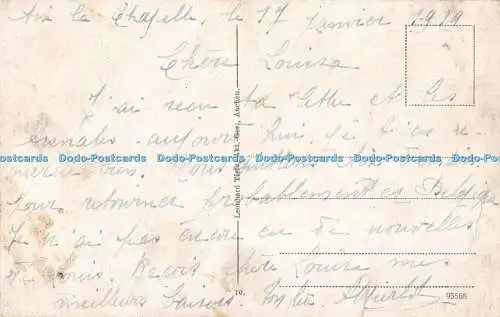 Aix la Chapelle, le 17 janvier 1919
Chère Louisa
J'ai reçu ta lettre et les
annales aujourd'hui je t'en re
mercie bien. Nous
pour retourner probablement en Belgique
Je n'ai pas encore eu de nouvelles
Reçois chère Louisa mes
meilleurs baisers. ton
Dodo-Postcards Dodo-Postcards Dodo-Postcards Dodo-Postcards Dodo-Postcards
Dodo-Postcards Dodo-Postcards Dodo-Postcards Dodo-Postcards Dodo-Postcards
Aachen.
10.
95568